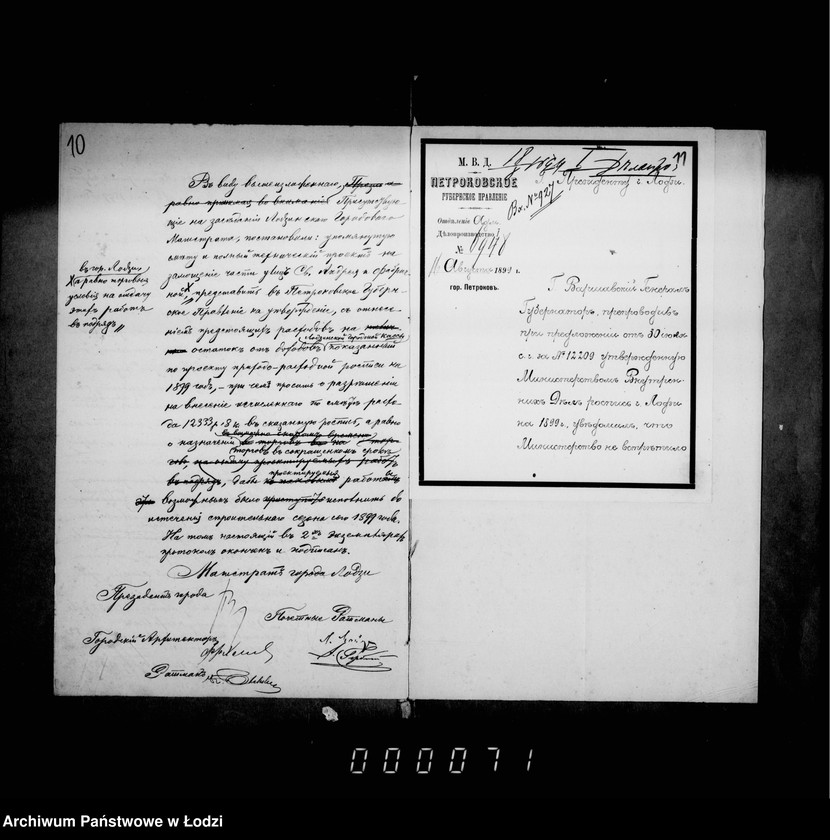 10
Въ виду вышеизложеннаго,
Присутствую-
щіе на засѣданіи Лодзинскаго Городового
Магистрата, постановили: упомянутую
смѣту и полный техническій проектъ на
замощеніе части улицъ Св. Андрея и
ной, представить въ Петроковское Губерн-
ское Правленіе на утвержденіе, съ отнесе-
ніемъ предстоящихъ расходовъ на
остатокъ отъ доходовъ показанный
по проекту приходо-расходной росписи на
1899 годъ, – при чемъ просить о разрѣшеніи
на внесеніе исчисленнаго по смѣтѣ расхо-
да 12333 р. 81 к. въ сказанную роспись, а равно
о назначеніи
торговъ въ сокращенномъ срокѣ
въ подрядъ, дабы проектируемыя работы
возможныхъ было исполнить въ
теченіи строительнаго сезона сего 1899 года.
На томъ настоящій въ 2хъ экземплярахъ
протоколъ оконченъ и подписанъ.
въ гор. Лодзи
условій на отдачу
этихъ работъ
въ подрядъ
Магистратъ города Лодзи
Президентъ города
Почетные Ратманы
Городской Архитекторъ
Ратманъ
11
М. В. Д.
ПЕТРОКОВСКОЕ
ГУБЕРНСКОЕ ПРАВЛЕНІЕ.
Отдѣленіе Адм.
Дѣлопроизводство I
№ 6948
16 Августа 1899 г.
гор. Петроковъ.
Вх. № 927
Г. Президенту г. Лодзи.
Г. Варшавскій Генералъ
Губернаторъ, препроводивъ
при предложеніи отъ 30 іюля
с. г. за № 12209 утвержденную
Министерствомъ Внутрен-
нихъ Дѣлъ роспись г. Лодзи
на 1899 г. увѣдомилъ, что
Министерство не встрѣтило
000071
Archiwum Państwowe w Łodzi